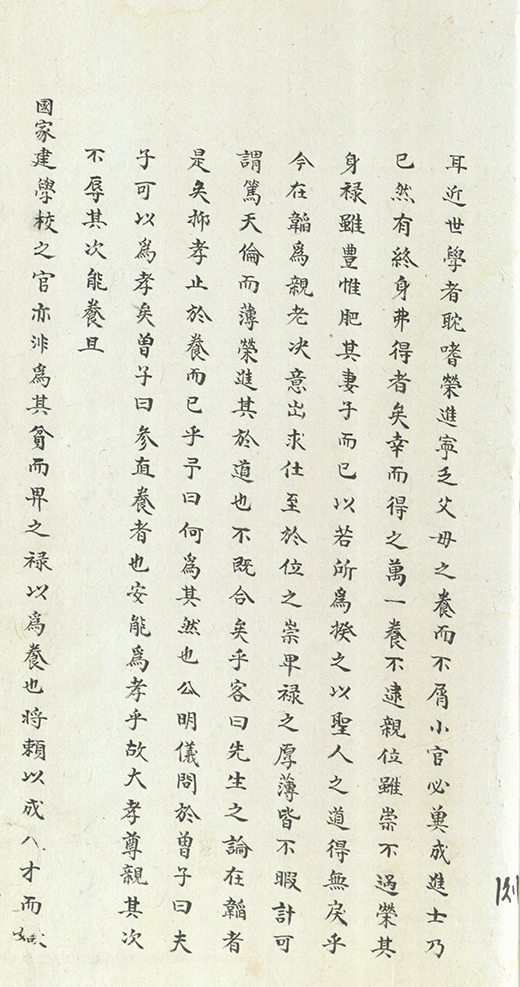 耳近世學者耽嗜榮進寧乏父母之養而不屑小官必冀成進士乃
已然有終身弗得者矣幸而得之萬一養不逮親位雖崇不過榮其
身祿雖豊惟肥其妻子而已以若所為揆之以聖人之道得無戾乎
今在韜為親老决意出求仕至於位之崇卑祿之厚薄皆不暇計可
謂篤天倫而薄榮進其於道也不既合矣乎客曰先生之論在韜者
是矣抑孝止於養而已乎予曰何為其然也公明儀問於曽子曰夫
子可以為孝矣曽子曰参直養者也安能為孝乎故大孝尊親其次
不辱其次能養且
國家建學校之官亦非為其貧而畀之祿以為養也将頼以成人才而